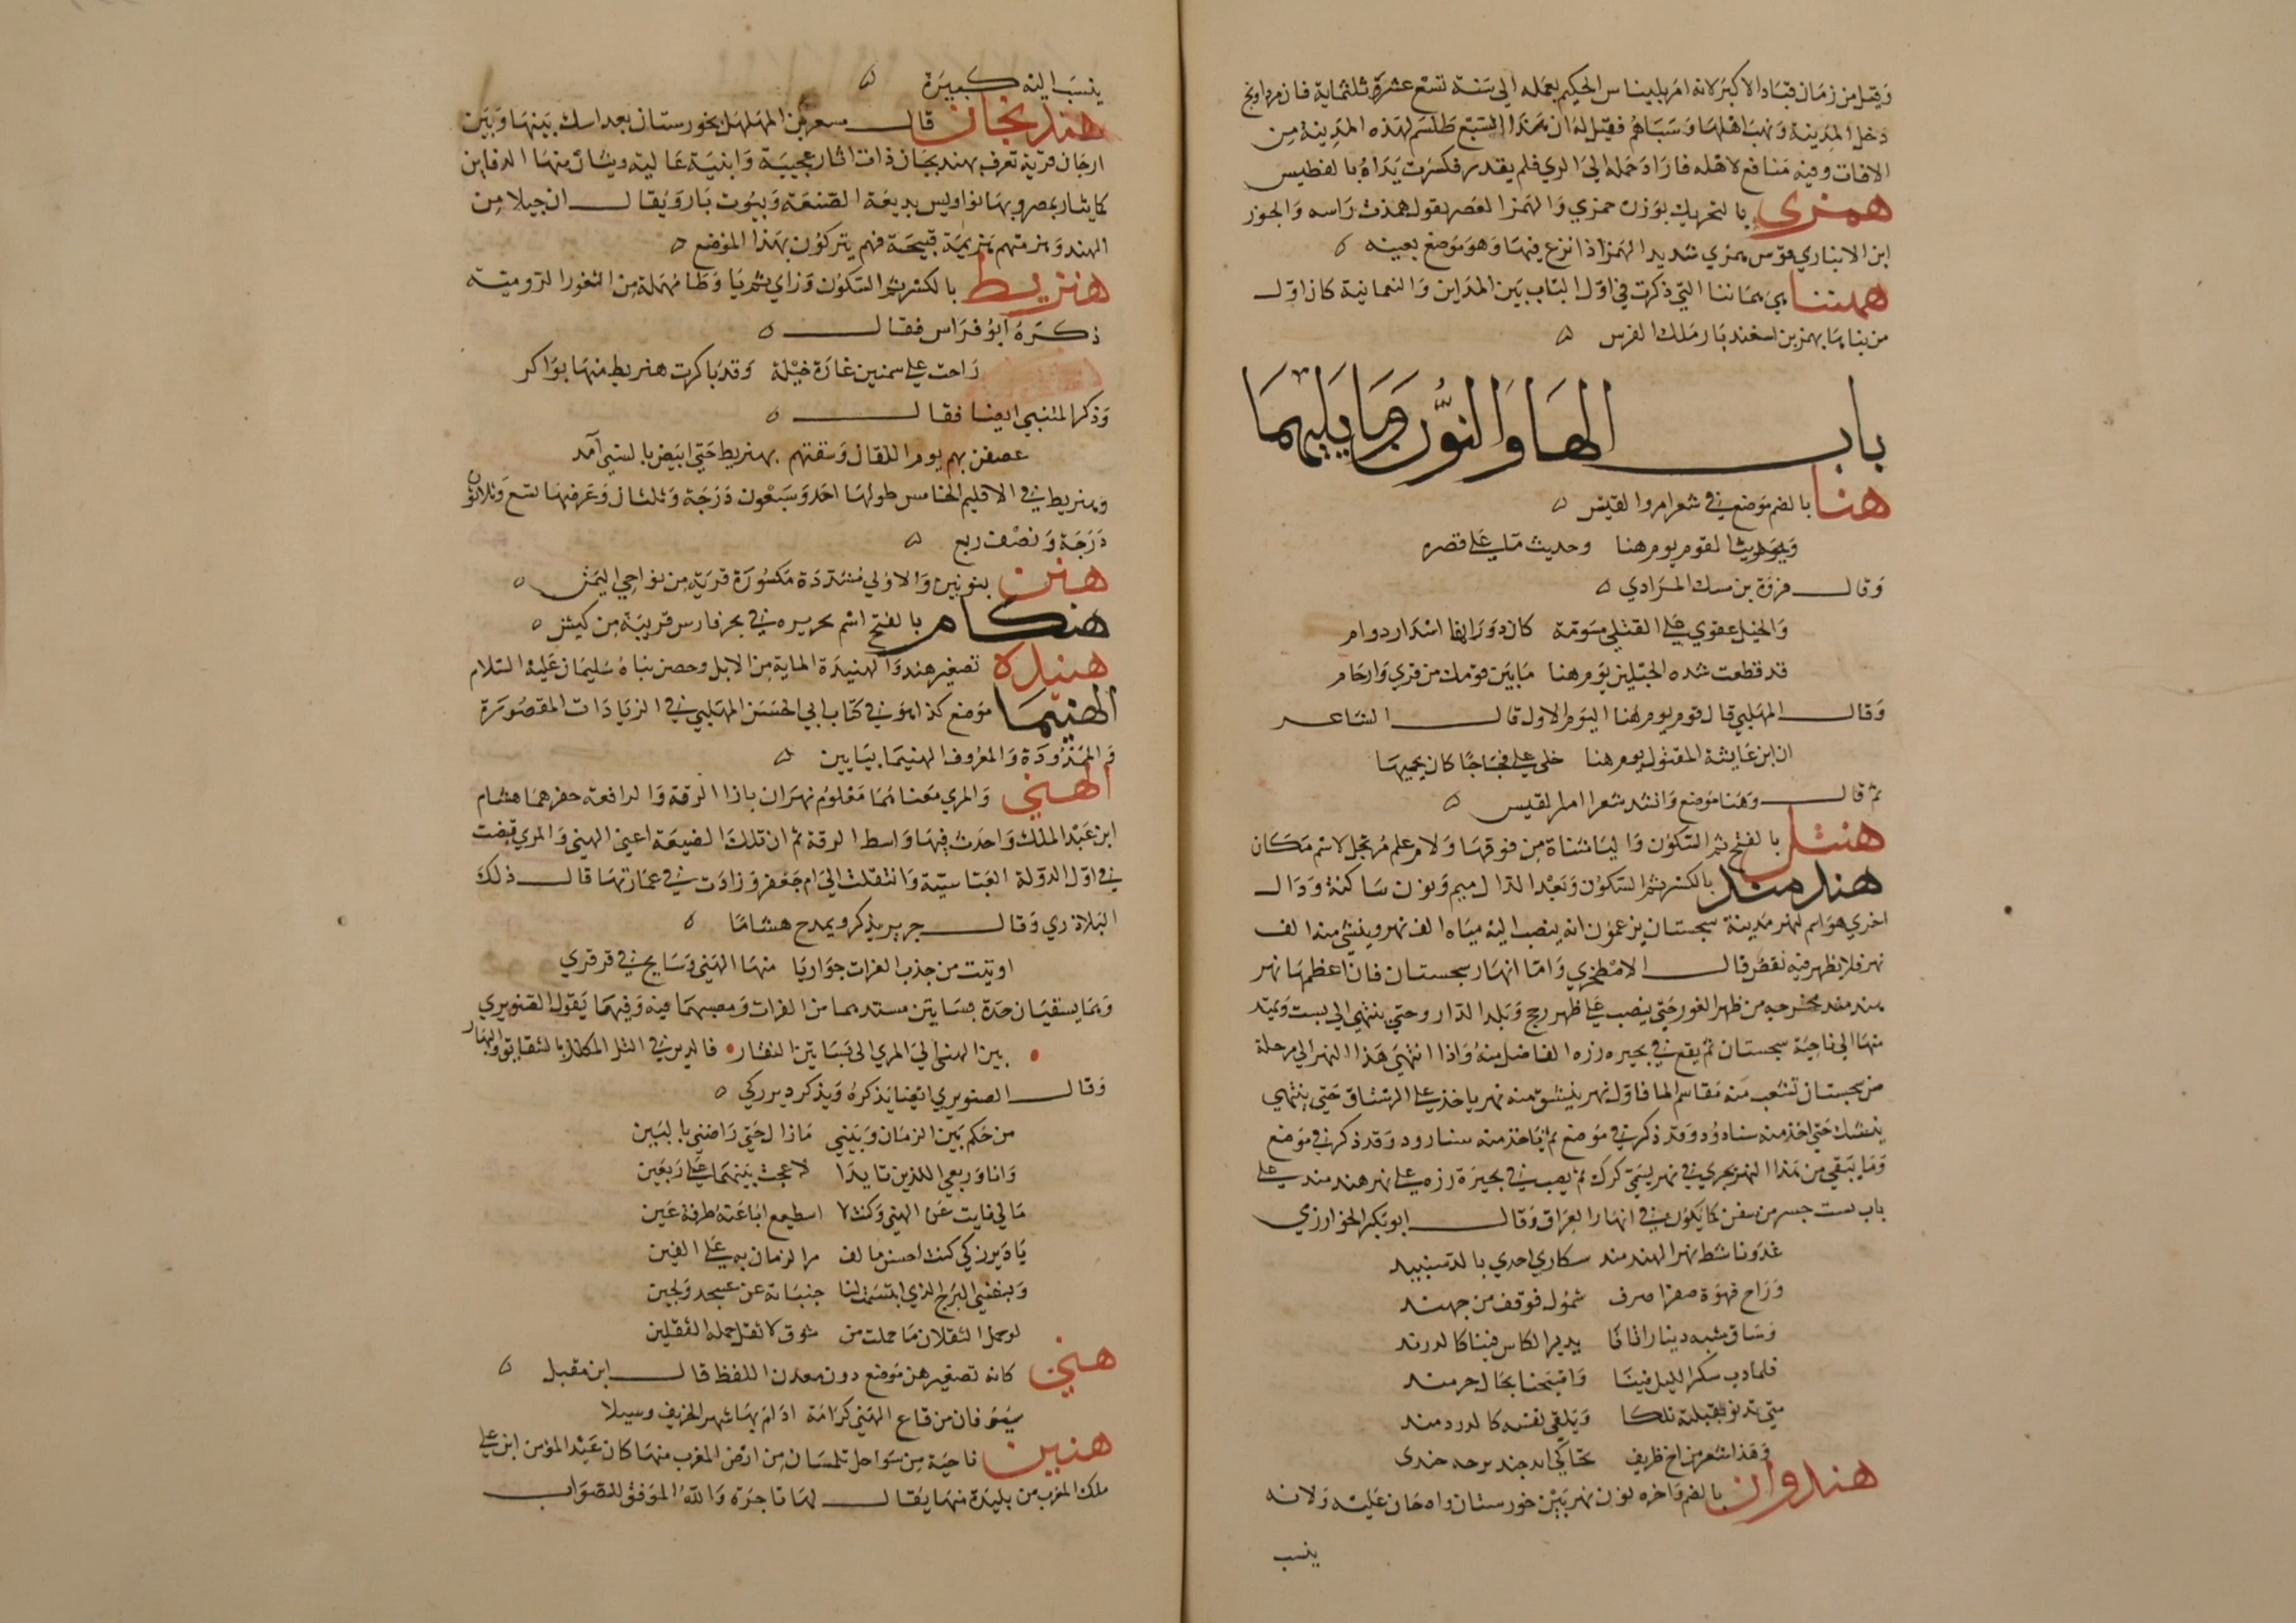 وقيل من زمان قباد الاكبر لانه امر بليناس الحكيم بعمله الى سنة تسع عشرة وثلثماية فان مرداويج
دخل المدينة ونهب اهلها وسباهم فقيل له ان هذا السبع طلسم لهذه المدينة من
الافات وفيه منافع لاهله فاراد حمله الى الري فلم يقدر فكسرت يداه بالفطيس
همزي بالتحريك بوزن جمزي والهمز العصر يقول همزت راسه والجوز
ابن الانباري قوس همزي شديد الهمز اذا نزع فيها وهو موضع بعينه
همينا هي همانيا التي ذكرت في اول الباب بين المداين والنعمانية كان اول
من بناها بهمن بن اسفنديار ملك الفرس
باب الها والنون وما يليهما
هنا بالضم موضع في شعر امرو القيس
وحديث القوم يوم هنا وحديث ما على قصره
وقال فروة بن مسيك المرادي
والخيل عقوي على القتلى مسومة كان دورانها استدار دوام
قد قطعت شده الجبلين يوم هنا ما بين قومك من قربي وارحام
وقال المهلبي قال قوم يوم هنا اليوم الاول قال الشاعر
ان ابن عايشة المقتول يوم هنا خلى على فجاجا كان يحميها
ثم قال وهنا موضع وانشد شعر امر القيس
هنتل بالفتح ثم السكون والتا مثناة من فوقها ولام علم مرتجل لاسم مكان
هندمند بالكسر ثم السكون وبعد الدال ميم ونون ساكنة ودال
اخرى هو اسم لنهر مدينة سجستان يزعمون انه ينصب اليه مياه الف نهر وينشق منه الف
نهر فلا يظهر فيه نقص قال الاصطخري واما انهار سجستان فان اعظمها نهر
هندمند مخرجه من ظهر الغور حتى ينصب على ظهر رخج وبلد الداور حتى ينتهي الى بست ويمتد
منها الى ناحية سجستان ثم يقع في بحيره زره الفاضل منه واذا انتهى هذا النهر الى مرحلة
من سجستان تشعب منه مقاسم الما فاول نهر ينشق منه نهر ياخذ على الرستاق حتى ينتهي
ينشك حتى اخذ منه سنارود وقد ذكر في موضع ثم ياخذ منه سنارود وقد ذكر في موضع
وما يبقى من هذا النهر يجري في نهر يسمى كرك ثم يصب في بحيرة زره على نهر هندمند على
باب بست جسر من سفن كما يكون في انهار العراق وقال ابو بكر الخوارزمي
غدونا شط نهر الهندمند سكارى اخذي بالدستبند
وراح قهوة صفرا صرف شمول قرقف من جهنند
وساق شبه دينار اتانا يدير الكاس فينا كالدرند
فلما دب سكر الليل فينا واصبحنا بحال جرمند
متى تدنو لقبلته تلكا ويلقى نفسه كالدردمند
وهذا شعر من اخ ظريف
هندوان بالضم واخره نون نهر بين خوزستان وارجان عليه ولانه
ينسب
ينسب اليه كبيرة
هنديجان قال مسعر بن المهلهل بخورستان بعد اسك بينها وبين
ارجان قرية تعرف بهنديجان ذات اثار عجيبة وابنية عالية ويثار منها الدفاين
كما يثار بمصر وبها نواويس بديعة الصنعة وبيوت نار ويقال ان جيلا من
الهند وهزمتهم هزيمة قبيحة فهم يتبركون بهذا الموضع
هنزيط بالكسر ثم السكون وزاي ثم يا وطا مهملة من الثغور الرومية
ذكره ابو فراس فقال
راحت على سمنين غارة خيلة وقد باكرت هنزيط منها بواكر
وذكر المتنبي ايضا فقال
عصفن بهم يوم اللقان وسقنهم بهنزيط حتى ابيض بالسبي آمد
وهنزيط في الاقليم الخامس طولها احد وسبعون درجة وثلثان وعرضها تسع وثلاثون
درجة ونصف ربع
هنن بنونين والاولى مشددة مكسورة قرية من نواحي اليمن
هنكام بالفتح اسم جزيره في بحر فارس قريبة من كيش
هنيدة تصغير هند والهنيدة الماية من الابل وحصن بناه سليمان عليه السلام
الهنيما موضع كذا هو في كتاب ابي الحسن المهلبي في الزيادات المقصورة
والممدودة والمعروف الهنيما بيايين
الهني والمري معناهما معلوم نهران بازا الرقة والرافعة حفرهما هشام
ابن عبد الملك واحدث فيها واسط الرقة ثم ان تلك الضيعة اعني الهني والمري قبضت
في اول الدولة العباسية وانتقلت الى ام جعفر وزادت في عمارتها قال ذلك
البلاذري وقال جرير يذكر ويمدح هشاما
اوتيت من جذب الفرات جواريا منها الهني وسايح في قرقري
وهما يسقيان عدة بساتين مستمدهما من الفرات ومصبهما فيه وفيهما يقول الصنوبري
بين الهني الى المري الى بساتين النقار فالدير ذي التل المكلل بالشقايق والبهار
وقال الصنوبري ايضا يذكره ويذكر دير زكي
من حكم بين الزمان وبيني مازال حتى راضني بالبين
وانا وربعي اللذين تابدا لا عجت بينهما على ربعين
مالي نايت عن الهني وكنت لا اسطيع اباعته طرفة عين
يا دير زكي كنت احسن مالف مر الزمان به على الفين
وبنفسي البرج الذي ابتسمت لنا جنباته عن عسجد ولجين
لو حمل الثقلان ما حملت من شوق لاثقل حمله الثقلين
هني كانه تصغير هن موضع دون معدن اللفظ قال ابن مقبل
يسوفان من قاع الهني كرامة ادام بها شهر الخريف وسيلا
هنين ناحية من سواحل تلمسان من ارض المغرب منها كان عبد المؤمن ابن علي
ملك المغرب من بليدة منها يقال لها تاجرة والله الموفق للصواب